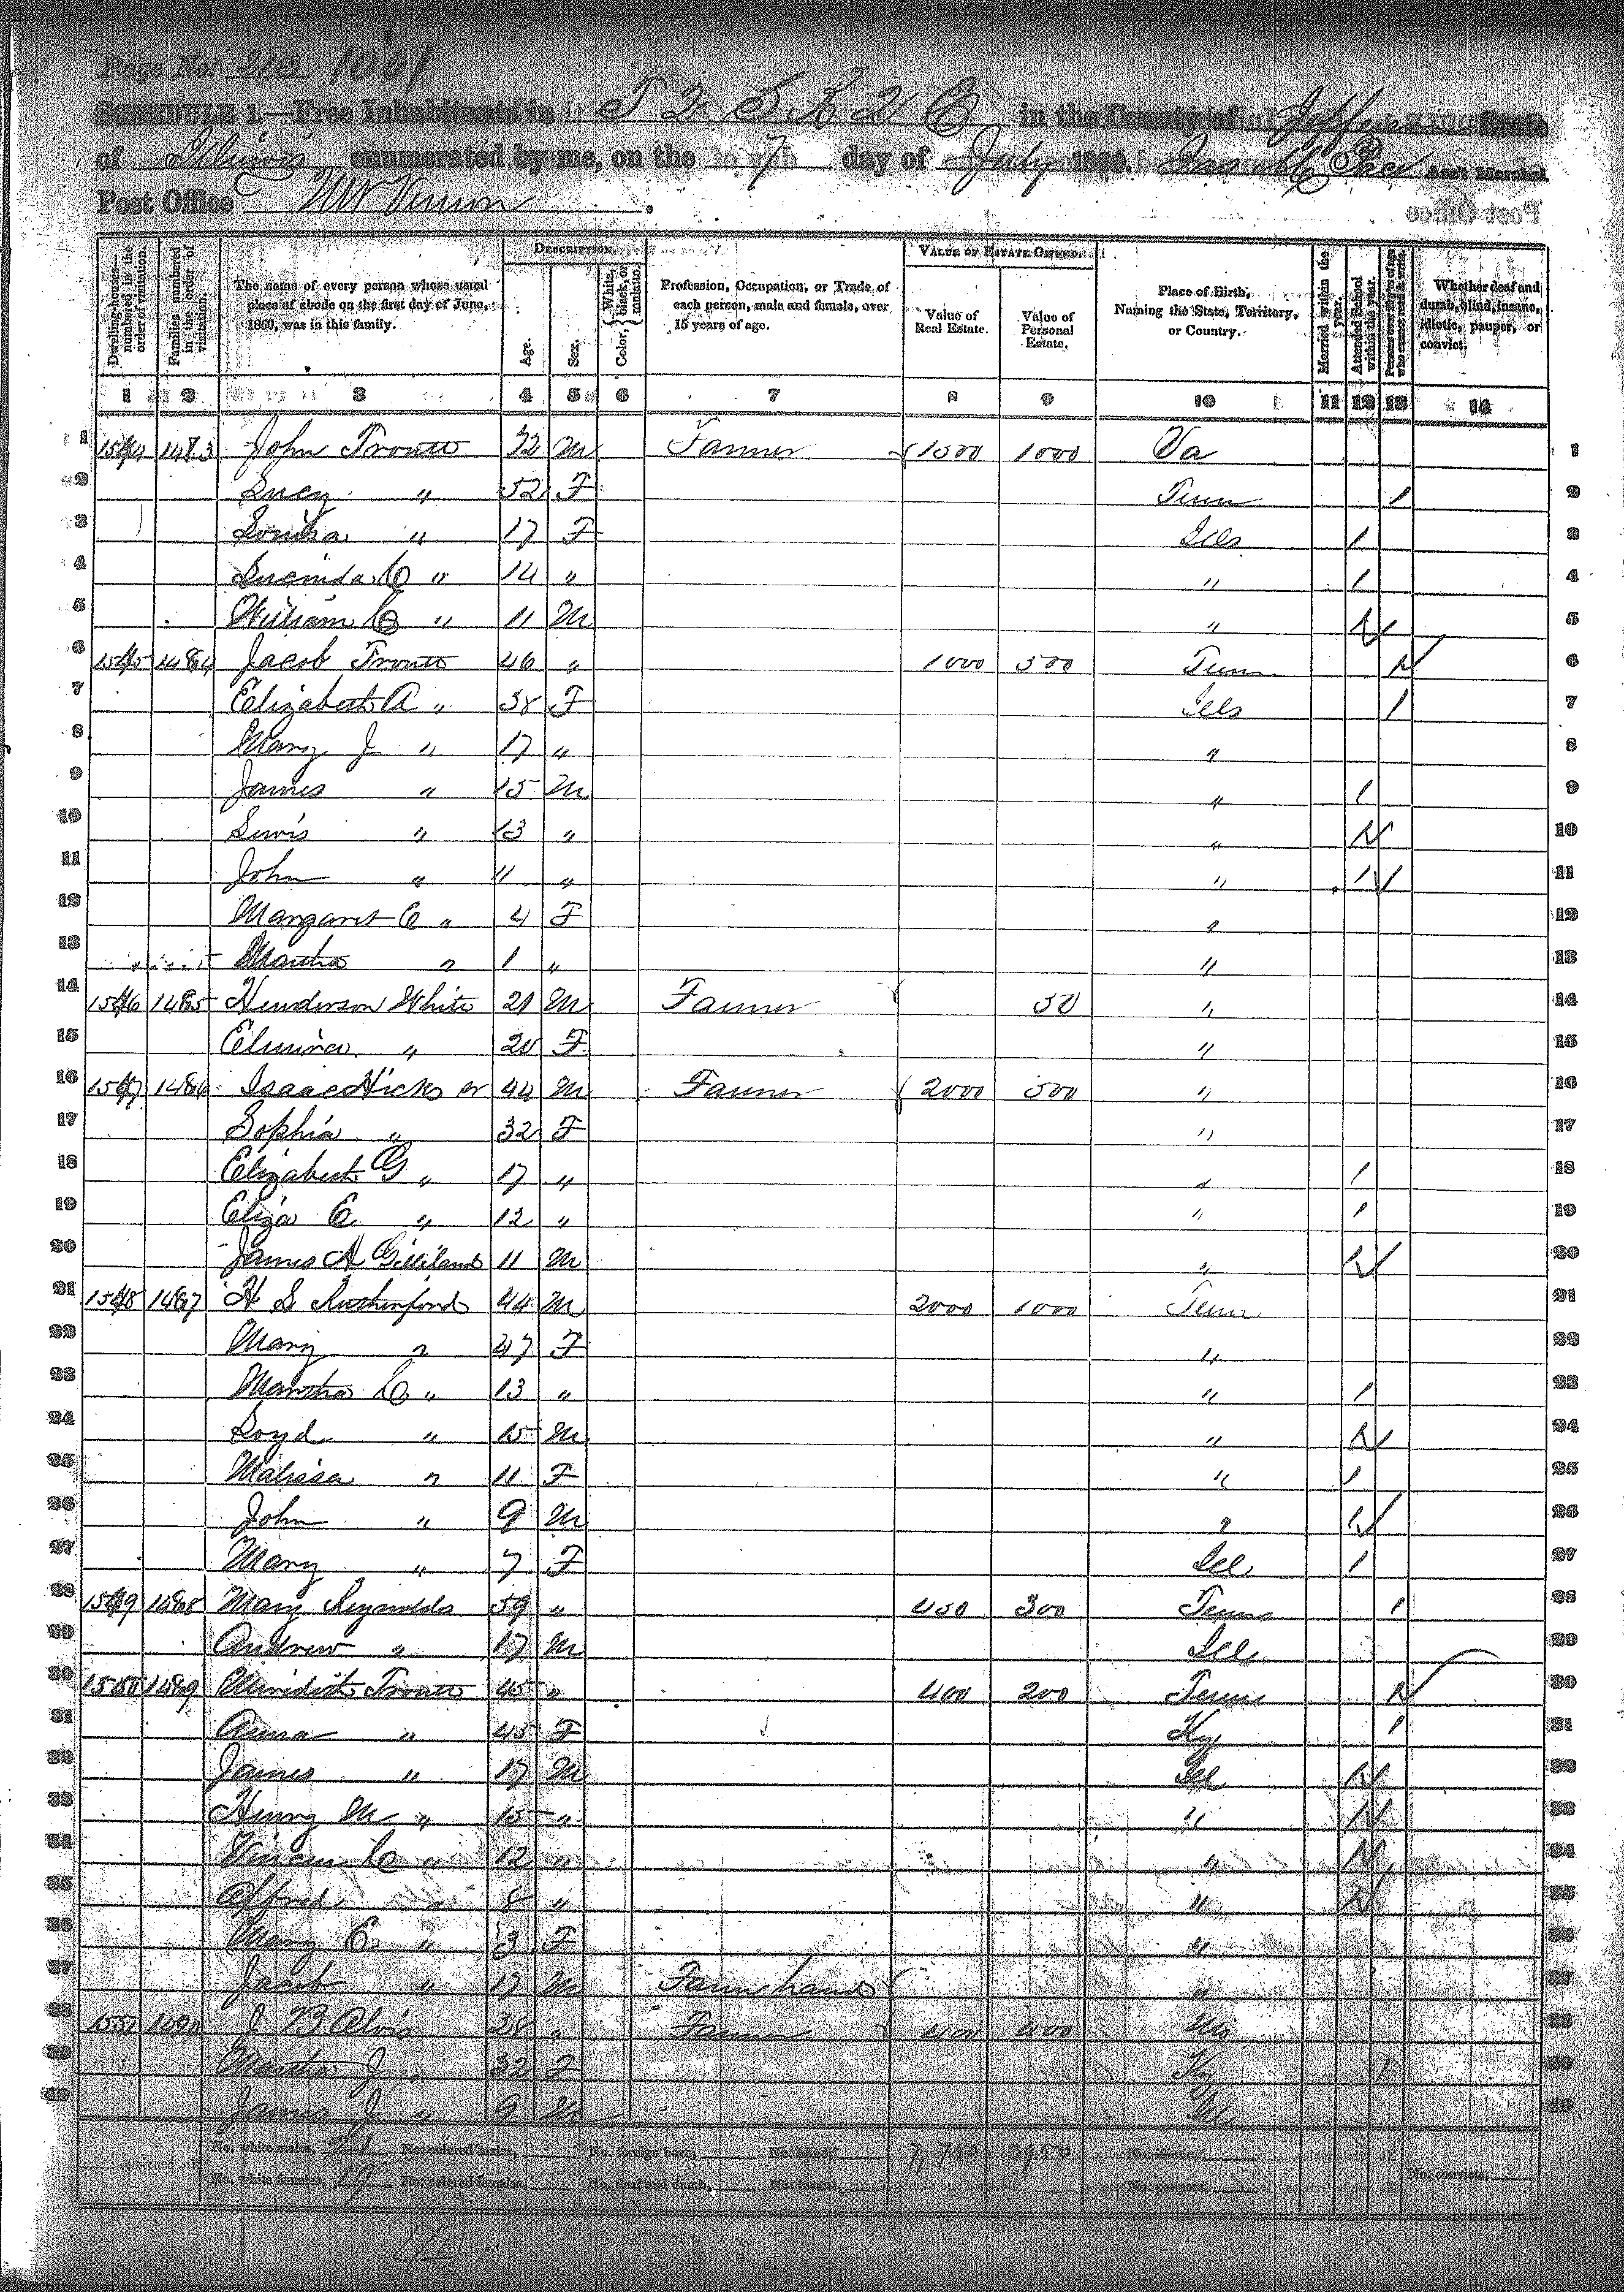 Page No. 213 1001
SCHEDULE 1.—Free Inhabitants in T 2 S R 2 E in the County of Jefferson State
of Illinois enumerated by me, on the 7 day of July 1860. Jas M Pace Ass't Marshal
Post Office Mt Vernon.
Dwelling-houses—numbered in the order of visitation.
Families numbered in the order of visitation.
The name of every person whose usual place of abode on the first day of June, 1860, was in this family.
DESCRIPTION.
Age.
Sex.
Color, { White, black, or mulatto.
Profession, Occupation, or Trade of each person, male and female, over 15 years of age.
VALUE OF ESTATE OWNED.
Value of Real Estate.
Value of Personal Estate.
Place of Birth, Naming the State, Territory, or Country.
Married within the year.
Attended School within the year.
Persons over 20 y'rs of age who cannot read & write.
Whether deaf and dumb, blind, insane, idiotic, pauper, or convict.
1 2 3 4 5 6 7 8 9 10 11 12 13 14
1 1544 1483 John Troutt 72 M Farmer 1500 1000 Va 1
2 Lucy " 52 F Tenn / 2
3 Louisa " 17 F Ills / 3
4 Lucinda C " 14 " " / 4
5 William C " 11 M " / 5
6 1545 1484 Jacob Troutt 46 " 1000 500 Tenn / 6
7 Elizabeth A " 38 F Ills / 7
8 Mary J " 17 " " 8
9 James " 15 M " / 9
10 Lewis " 13 " " / 10
11 John " 11 " " / 11
12 Margaret C " 4 F " 12
13 Martha " 1 " " 13
14 1546 1485 Henderson White 21 M Farmer 50 " 14
15 Elmina " 20 F " 15
16 1547 1486 Isaac Hicks sr 44 M Farmer 2000 500 " 16
17 Sophia " 32 F " 17
18 Elizabeth G " 17 " " / 18
19 Eliza E " 12 " " / 19
20 James A Gilliland 11 M " / 20
21 1548 1487 H S Rutherford 44 M 2000 1000 Tenn 21
22 Mary " 47 F " 22
23 Martha C " 13 " " / 23
24 Loyd " 15 M " / 24
25 Malissa " 11 F " / 25
26 John " 9 M " / 26
27 Mary " 7 F Ill / 27
28 1549 1488 Mary Reynolds 59 " 450 300 Tenn / 28
29 Andrew " 17 M Ill 29
30 1550 1489 Meridith Troutt 45 " 400 200 Tenn / 30
31 Anna " 45 F Ky / 31
32 James " 17 M Ill / 32
33 Henry M " 15 " " / 33
34 C " 12 " " / 34
35 Alfred " 8 " " / 35
36 Mary E " 3 F " 36
37 Jacob " 17 M Farm hand " 37
38 1551 1490 J B Alvis 28 " Farmer 400 400 Mo 38
39 Martha J " 32 F Ky / 39
40 James J " 9 M Ill 40
No. white males, 21 No. colored males, No. foreign born, No. blind, 7,750 3950 No. idiotic,
No. white females, 19 No. colored females, No. deaf and dumb, No. insane, No. paupers, No. convicts,